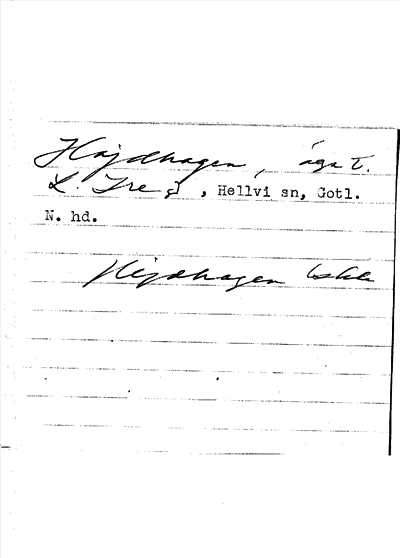 Hajdhagen, äga t.
L. Ire 3, Hellvi sn, Gotl.
N. hd.
Hejdhagen